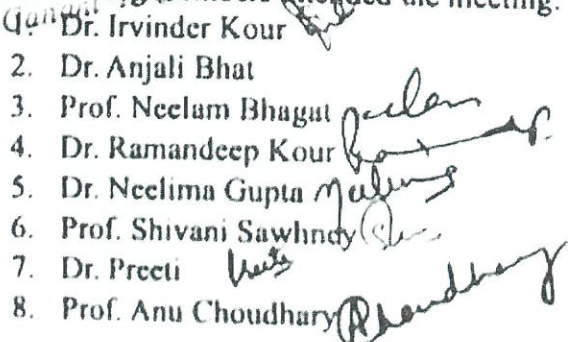 attended the meeting.
1. Dr. Irvinder Kour
2. Dr. Anjali Bhat
3. Prof. Neelam Bhagat Neelam
4. Dr. Ramandeep Kour
5. Dr. Neelima Gupta
6. Prof. Shivani Sawhney
7. Dr. Preeti Preeti
8. Prof. Anu Choudhary Choudhary